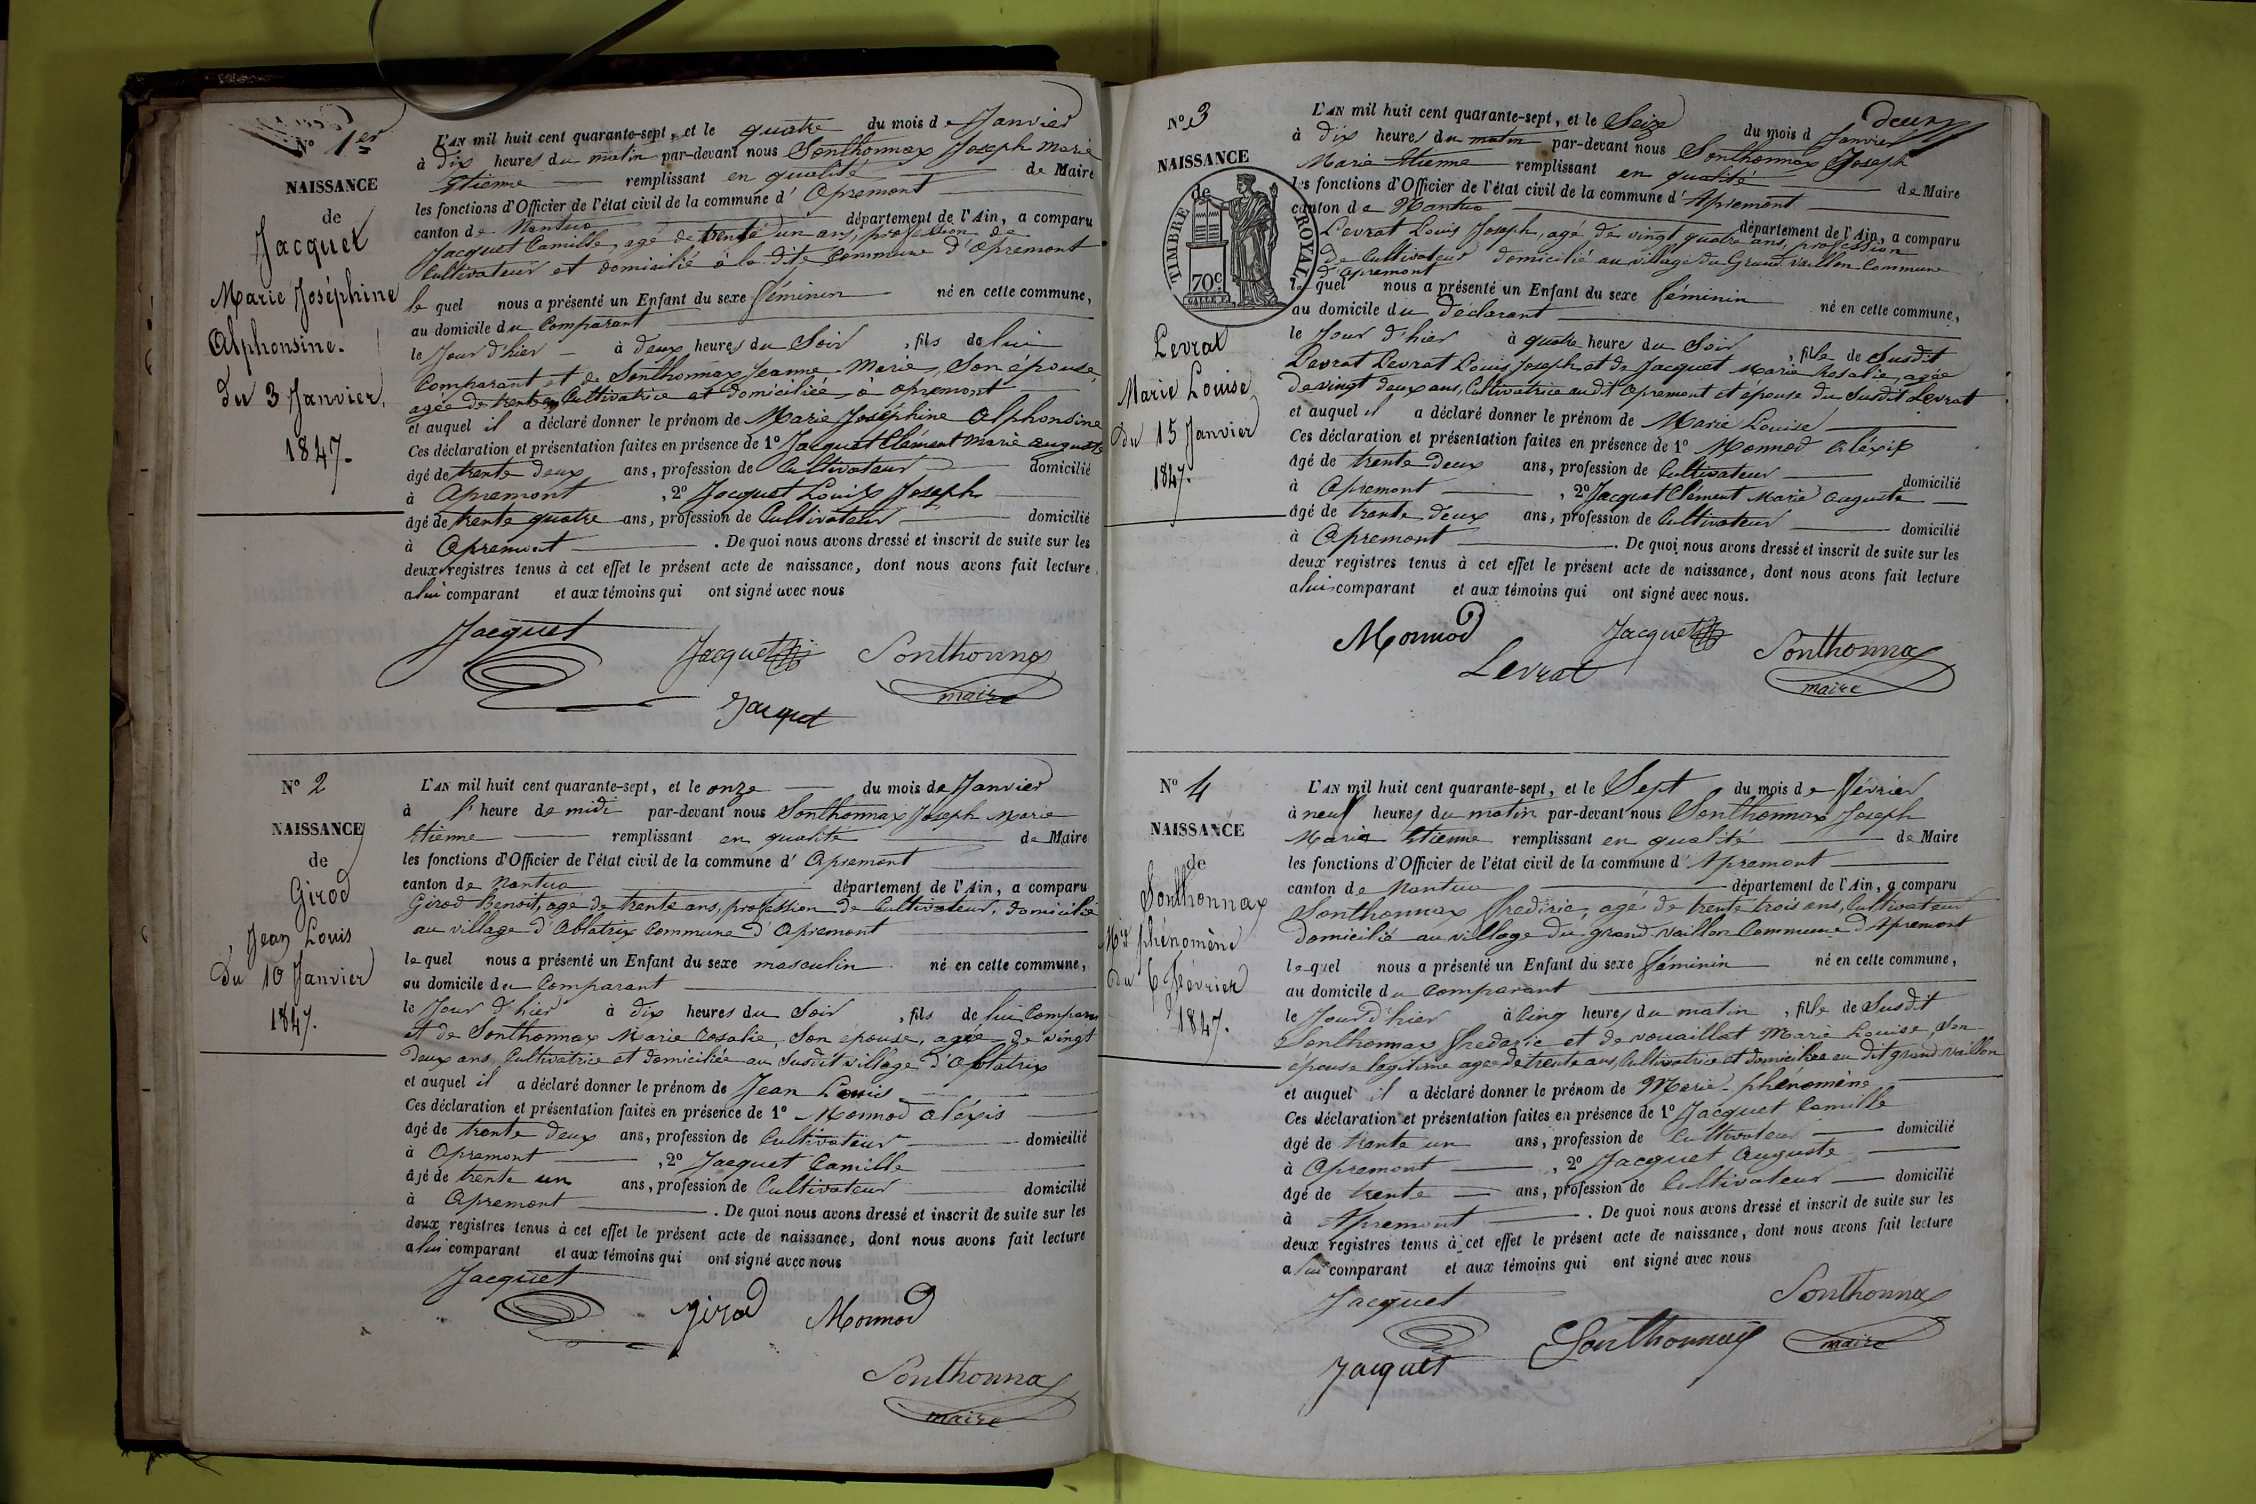 Nº 1er
NAISSANCE
de
Jacquet
Marie Joséphine
Alphonsine.
du 3 Janvier
1847.
L'AN mil huit cent quarante-sept, et le quatre du mois de Janvier
à dix heures du matin par-devant nous Sonthonnax Joseph Marie
Etienne remplissant en qualité de Maire
les fonctions d'Officier de l'état civil de la commune d' Apremont
canton de Nantua département de l'Ain, a comparu
Jacquet Camille, agé de trente un ans, profession de
Cultivateur et domicilié à la dite Commune d'Apremont
le quel nous a présenté un Enfant du sexe féminin né en cette commune,
au domicile du Comparant
le Jour d'hier à deux heures du Soir, fils de lui
Comparant et de Sonthonnax Jeanne Marie, Son épouse,
agée de trente Cultivatrice et domiciliée à Apremont
et auquel il a déclaré donner le prénom de Marie Joséphine Alphonsine
Ces déclaration et présentation faites en présence de 1º Jacquet Clément Marie auguste
âgé de trente deux ans, profession de Cultivateur domicilié
à Apremont, 2º Jacquet Louis Joseph
âgé de trente quatre ans, profession de Cultivateur domicilié
à Apremont. De quoi nous avons dressé et inscrit de suite sur les
deux registres tenus à cet effet le présent acte de naissance, dont nous avons fait lecture
a lui comparant et aux témoins qui ont signé avec nous
Jacquet
Jacquet
Sonthonnax
maire
Jacquet
Nº 2
NAISSANCE
de
Girod
Jean Louis
du 10 Janvier
1847.
L'AN mil huit cent quarante-sept, et le onze du mois de Janvier
à l'heure de midi par-devant nous Sonthonnax Joseph Marie
Etienne remplissant en qualité de Maire
les fonctions d'Officier de l'état civil de la commune d' Apremont
canton de Nantua département de l'Ain, a comparu
Girod Benoit, agé de trente ans, profession de Cultivateur, domicilié
au village d'Ablatrix Commune d'Apremont
lequel nous a présenté un Enfant du sexe masculin né en cette commune,
au domicile du Comparant
le Jour d'hier à dix heures du Soir, fils de lui Comparant
et de Sonthonnax Marie Rosalie, Son épouse, agée de vingt
deux ans, Cultivatrice et domiciliée au Susdit village d'Ablatrix
et auquel il a déclaré donner le prénom de Jean Louis
Ces déclaration et présentation faites en présence de 1º Monnod aléxis
âgé de trente deux ans, profession de Cultivateur domicilié
à Apremont, 2º Jacquet Camille
âgé de trente un ans, profession de Cultivateur domicilié
à Apremont. De quoi nous avons dressé et inscrit de suite sur les
deux registres tenus à cet effet le présent acte de naissance, dont nous avons fait lecture
a lui comparant et aux témoins qui ont signé avec nous
Jacquet
Girod
Monnod
Sonthonnax
maire
deux
Nº 3
NAISSANCE
de
TIMBRE ROYAL
70c
Levrat
Marie Louise
du 15 Janvier
1847.
L'AN mil huit cent quarante-sept, et le Seize du mois d Janvier
à dix heures du matin par-devant nous Sonthonnax Joseph
Marie Etienne remplissant en qualité de Maire
les fonctions d'Officier de l'état civil de la commune d'Apremont
canton de Nantua département de l'Ain, a comparu
Levrat Louis Joseph, agé de vingt quatre ans, profession
de Cultivateur domicilié au village du Grand vaillon Commune
d'Apremont
le quel nous a présenté un Enfant du sexe féminin né en cette commune,
au domicile du déclarant
le Jour d'hier à quatre heures du Soir, fille de Susdit
Levrat Levrat Louis Joseph et de Jacquet Marie Rosalie, agée
de vingt deux ans, Cultivatrice au dit Apremont et épouse du Susdit Levrat
et auquel il a déclaré donner le prénom de Marie Louise
Ces déclaration et présentation faites en présence de 1º Monnod aléxis
âgé de trente deux ans, profession de Cultivateur domicilié
à Apremont, 2º Jacquet Clément Marie auguste
âgé de trente deux ans, profession de Cultivateur domicilié
à Apremont. De quoi nous avons dressé et inscrit de suite sur les
deux registres tenus à cet effet le présent acte de naissance, dont nous avons fait lecture
a lui comparant et aux témoins qui ont signé avec nous.
Monnod
Jacquet
Levrat
Sonthonnax
maire
Nº 4
NAISSANCE
de
Sonthonnax
Mie phénomène
du 6 Février
1847.
L'AN mil huit cent quarante-sept, et le Sept du mois de Février
à neuf heures du matin par-devant nous Sonthonnax Joseph
Marie Etienne remplissant en qualité de Maire
les fonctions d'Officier de l'état civil de la commune d'Apremont
canton de Nantua département de l'Ain, a comparu
Sonthonnax frederic, agé de trente trois ans, Cultivateur
domicilié au village du grand vaillon Commune d'Apremont
lequel nous a présenté un Enfant du sexe féminin né en cette commune,
au domicile du Comparant
le Jour d'hier à Cinq heures du matin, fille de Susdit
Sonthonnax frederic et de vouaillat Marie Louise, Son
épouse légitime agée de trente ans, Cultivatrice et domiciliée au dit grand vaillon
et auquel il a déclaré donner le prénom de Marie phénomène
Ces déclaration et présentation faites en présence de 1º Jacquet Camille
âgé de trente un ans, profession de Cultivateur domicilié
à Apremont, 2º Jacquet Auguste
âgé de trente ans, profession de Cultivateur domicilié
à Apremont. De quoi nous avons dressé et inscrit de suite sur les
deux registres tenus à cet effet le présent acte de naissance, dont nous avons fait lecture
a lui comparant et aux témoins qui ont signé avec nous
Jacquet
Sonthonnax
maire
Sonthonnax
Jacquet